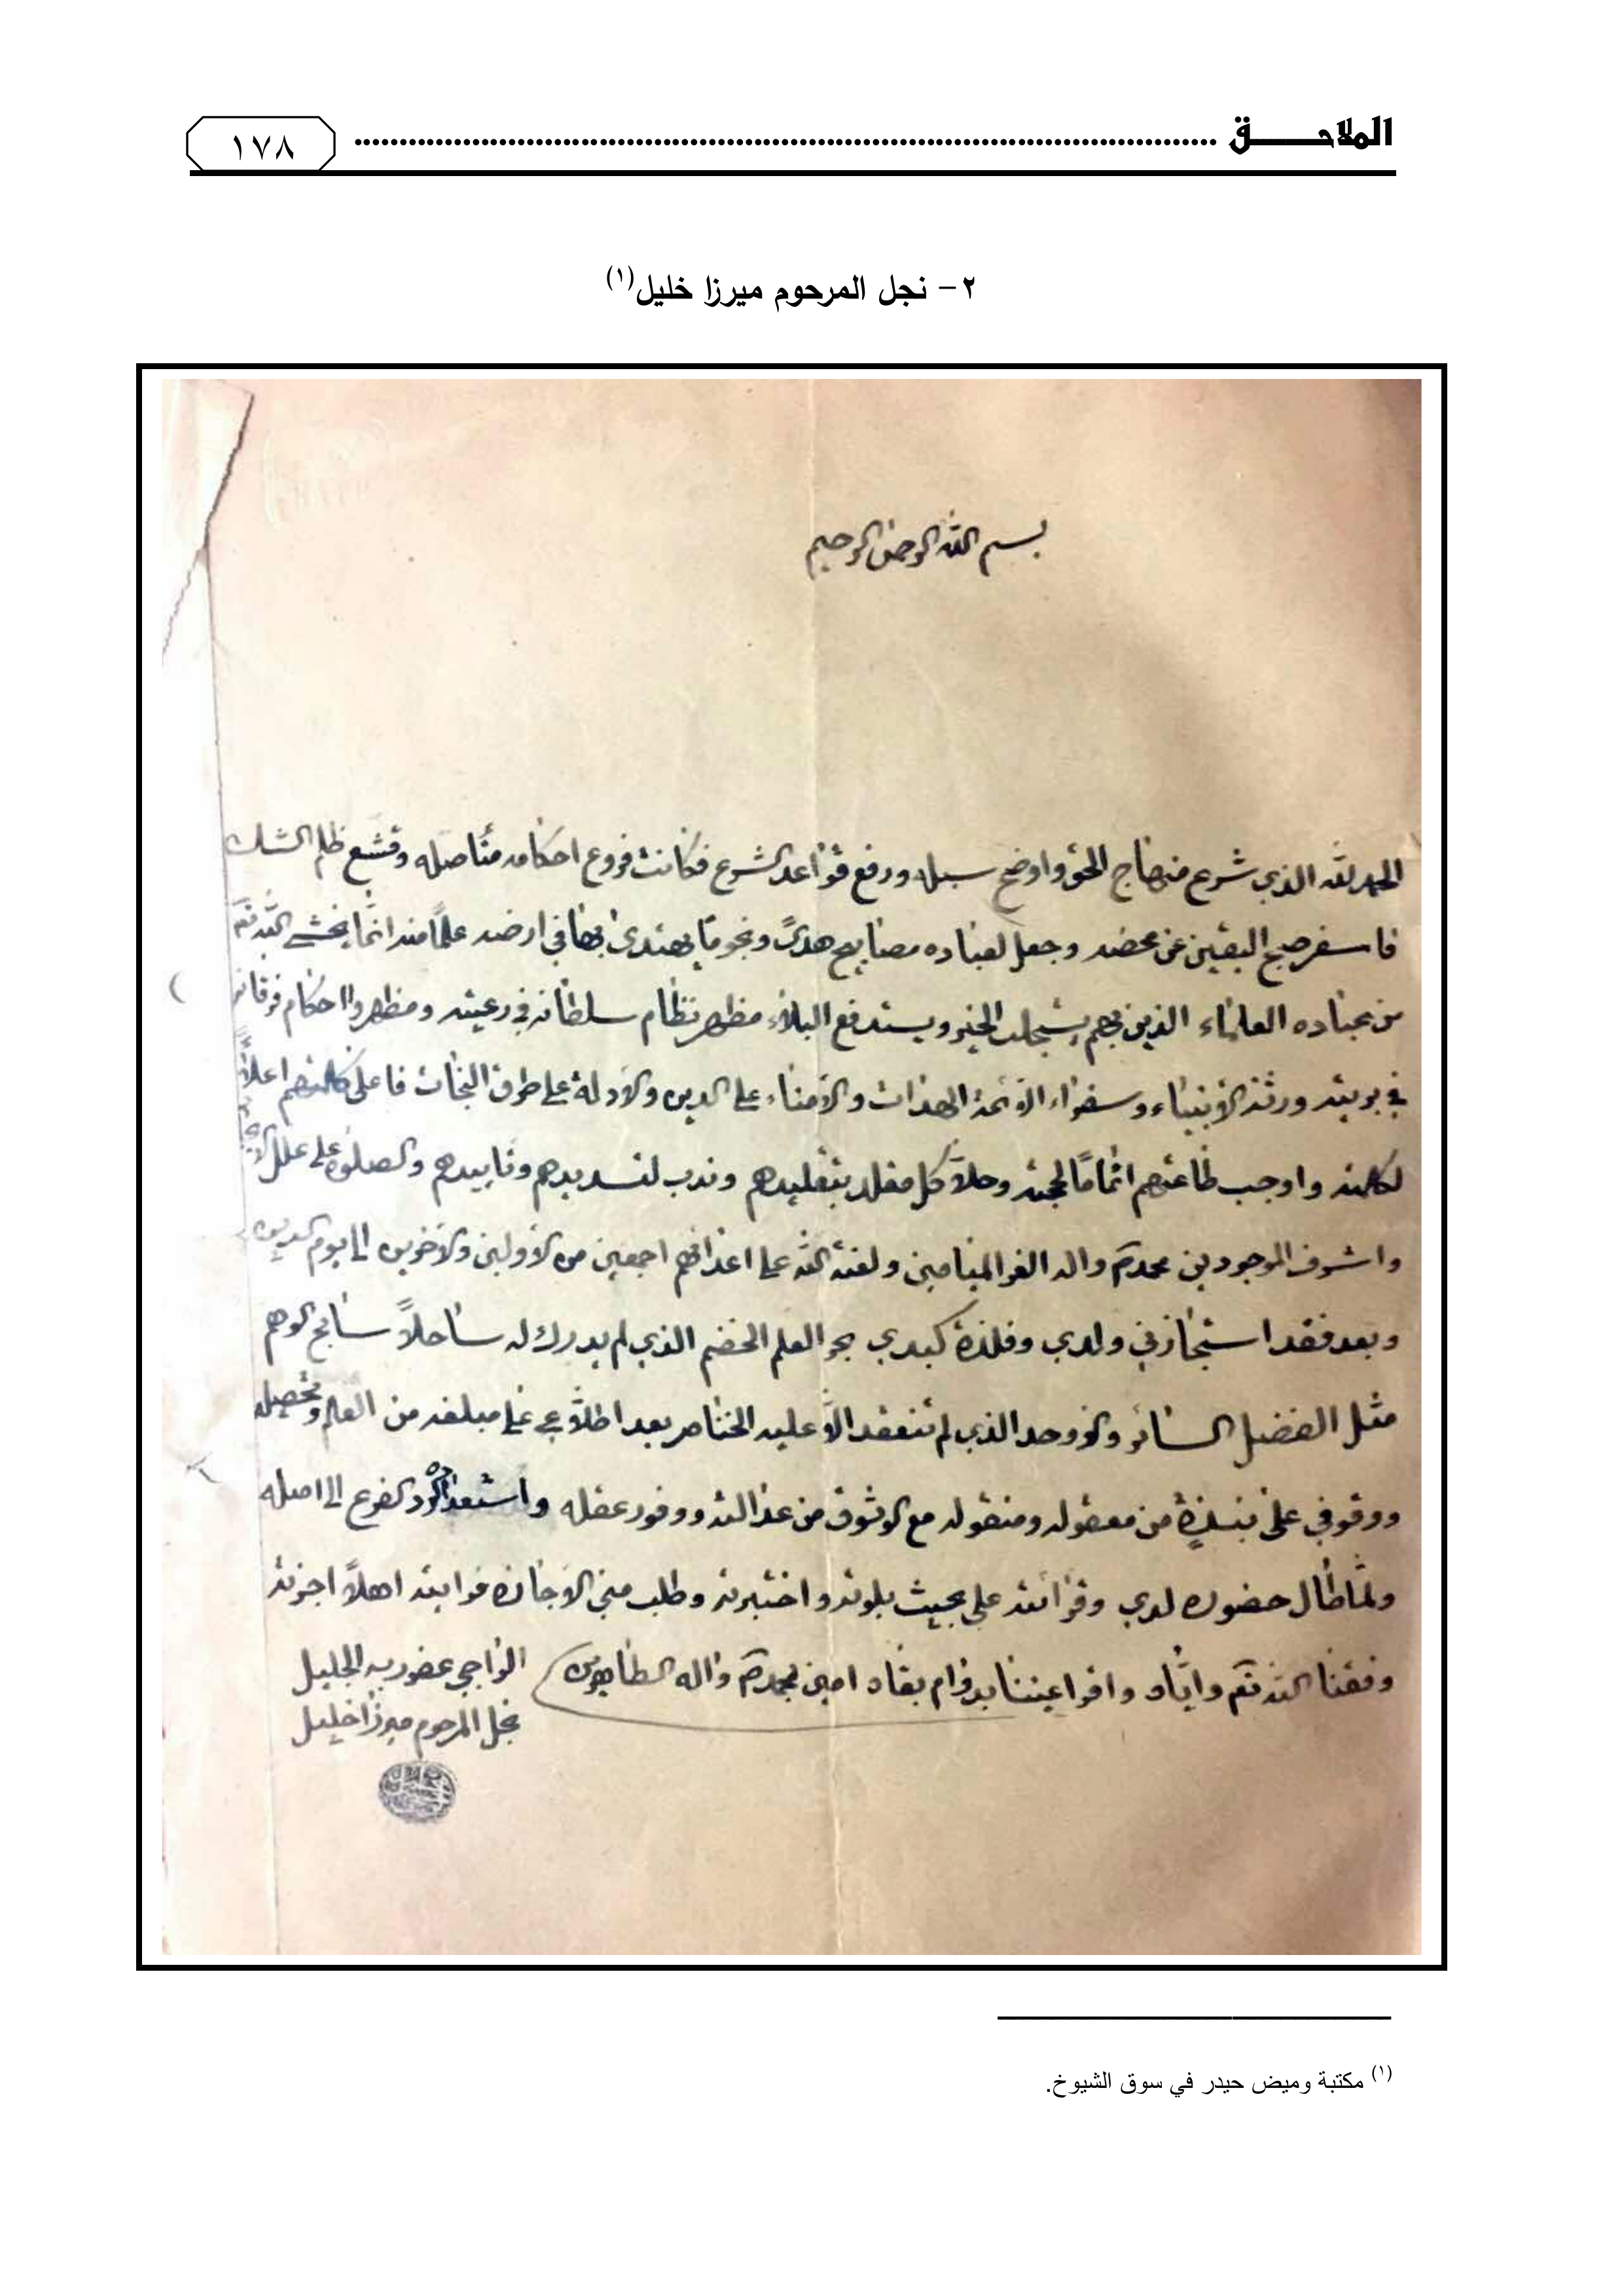 الملاحـــــق ........................................ ١٧٨
٢- نجل المرحوم ميرزا خليل(١)
بسم الله الرحمن الرحيم
الحمد لله الذي شرع منهاج الحق واوضح سبله ورفع قواعد الشرع فكانت فروع احكامه متاصله وقشع ظلم الشك
فاسفر صبح اليقين عن محضه وجعل لعباده مصابيح هدىً ونجوما يهتدى بها في ارضه علمًا منه انما يخشى الله تعم
من عباده العلماء الذين بهم يستجلب الخير ويستدفع البلاء مظهر نظام سلطانه في رعيته ومظهروا احكام فرقانه
في بريته ورثة الأنبياء وسفراء الأئمة الهدات والأمناء على الدين والأدلة على طرق النجات فاعلى كلمتهم اعلاءً
لكلمته واوجب طاعتهم اتمامًا لحجته وحلاّ كل مقلد بتقليدهم وندب لتسديدهم وتاييدهم والصلوة على علل
واشرف الموجودين محمد ص واله الغر الميامين ولعنة الله على اعدائهم اجمعين من الأولين والأخرين الى يوم الدين
وبعد فقد استجازني ولدي وفلذة كبدي بحر العلم الخضم الذي لم يدرك له ساحلاً سابح الوهم
مثل الفضل السائر والأوحد الذي لم تنعقد الاّ عليه الخناصر بعد اطلاعي على مبلغه من العلم وتحصيله
ووقوفي على نبذة من معقوله ومنقوله مع الوثوق من عدالته ووفور عقله واستعداده لرد الفرع الى اصله
ولما طال حضوره لدي وقرائته علي بحيث بلوته واختبرته وطلب مني الاجازة فرايته اهلاً اجزته
وفقنا الله تعم واياه واقر اعيننا بدوام بقاه امين بمحمد ص واله الطاهرين
الراجي عفو ربه الجليل
نجل المرحوم ميرزا خليل
(١) مكتبة وميض حيدر في سوق الشيوخ.